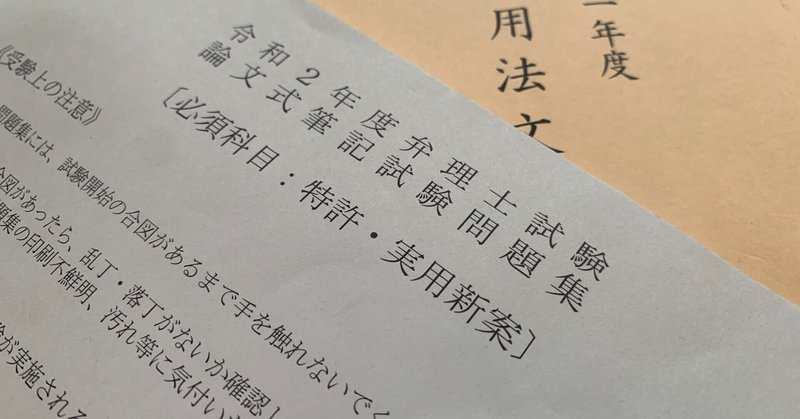 令和2年度弁理士試験
論文式筆記試験問題集
〔必須科目：特許・実用新案〕
《受験上の注意》
問題集には、試験開始の合図があるまで手を触れないでく
合図があったら、乱丁・落丁がないか確認し
題集の印刷不鮮明、汚れ等に気付い
が実施される
年度
用法文